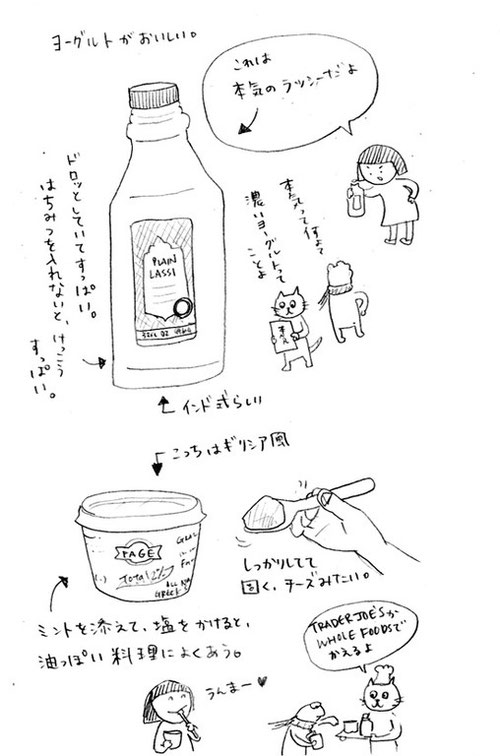 ヨーグルトがおいしい。
これは
本気のラッシーだよ
本気って何よ?
濃いヨーグルトって
ことよ
本気
ドロッとしていてすっぱい。
はちみつを入れないと、けっこう
すっぱい。
PLAIN
LASSI
インド式らしい
こっちはギリシア風
FAGE
Total 2%
しっかりしてて
固く、チーズみたい。
ミントを添えて、塩をかけると、
油っぽい料理によくあう。
TRADER JOE'Sか
WHOLE FOODSで
かえるよ
うんまー♥